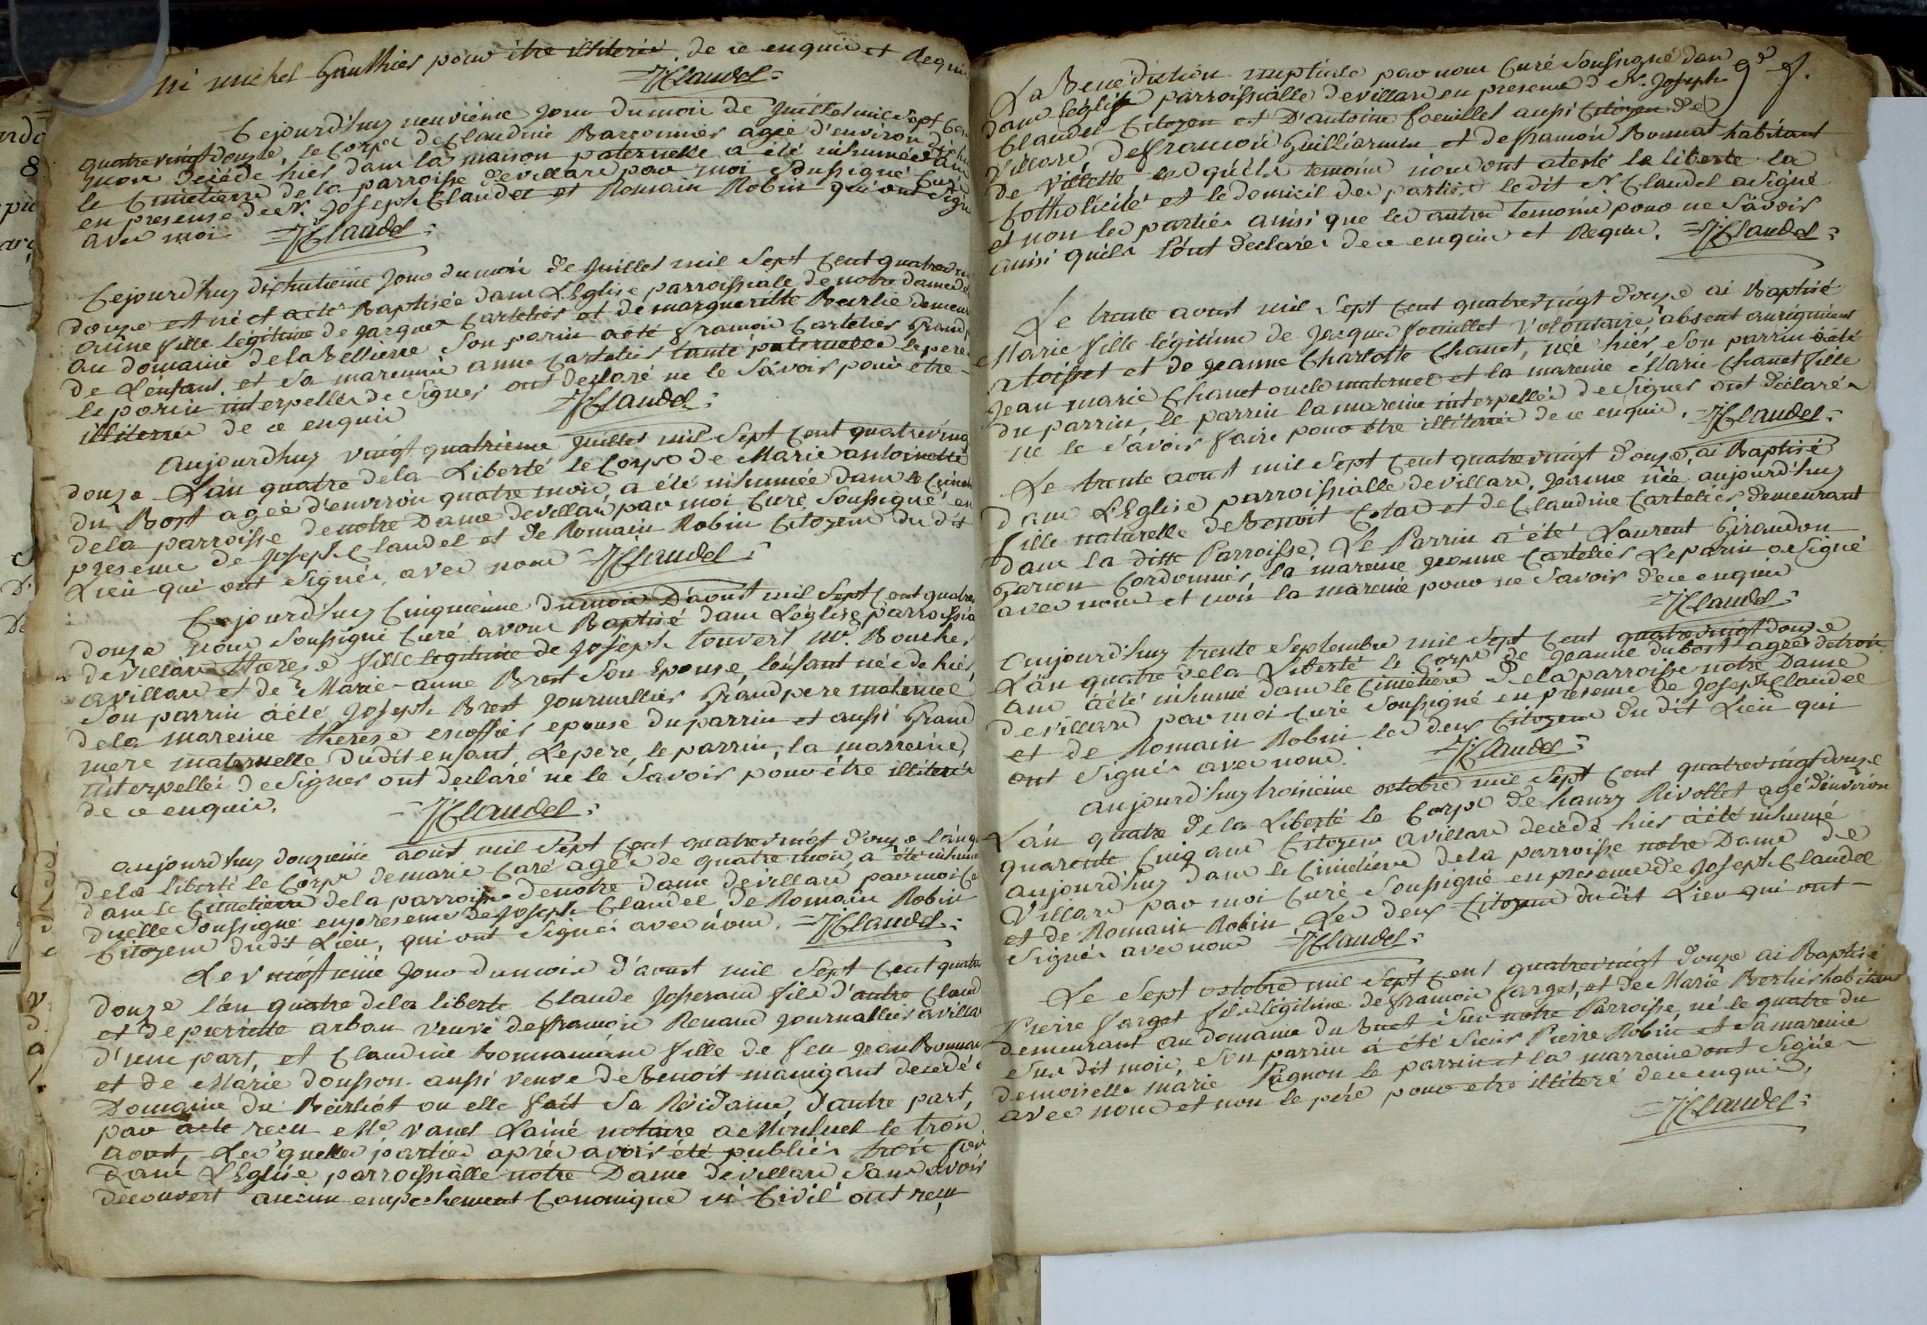 ni michel Gauthier pour être illiteré de ce enquis et Requis
=JClaudel=
Cejourd'huy neuvieme jour du mois de Juillet mil Sept Cent
quatrevingt douze, le Corps de Claudine Barronnier agée d'environ
mois décédé hier dans la maison paternelle a été inhumée dans
le Cimetierre de la parroisse de villars par moi Soussigné Curé
en presense de N. Joseph Claudel et Romain Robin qui ont Signé
avec moi =JClaudel=
Cejourd'huy dixhuitieme jour du mois de Juillet mil Sept Cent quatrevingt
douze est né et a eté Baptisée dans L'Eglise parroissiale de notre dame de
une fille legitime de Jacques Cartelier et de margueritte Berlie demeurant
au domaine de la Bellierre Son parin a eté francois Cartelier Grand pere
de L'enfant, et Sa marenne anne Cartelier tante paternelle le pere
le parin interpellés de Signer ont declaré ne le Savoir pour etre
illiterés de ce enquis =JClaudel=
aujourdhuy vingt quatrieme Juillet mil Sept Cent quatrevingt
douze L'an quatre de la Liberté le Corps de Marie antoinette
du Bost agée d'environ quatre mois, a été inhumée dans le Cimetierre
de la parroisse de notre Dame de villars par moi Curé Soussigné en
presense de Joseph Claudel et de Romain Robin Citoyens du dit
Lieu qui ont Signés avec nous =JClaudel=
Cejourd'huy Cinquieme du mois D'aoust mil Sept Cent quatrevingt
douze nous Soussigné Curé avons Baptisé dans L'église parroissiale
de villars therese fille legitime de Joseph touvert Me Boucher
a villars et de Marie-anne Brest Son Epouse, l'enfant née de hier
Son parrin a été Joseph Brest Journallier Grand pere maternel
de la mareine therese enoffier epouse du parrin et aussi Grand
mere maternelle du dit enfant. Le père, le parrin, la marreine
interpellés de Signer ont declaré ne le Savoir pour être illiterés
de ce enquis. =JClaudel=
aujourdhuy douzieme aoust mil Sept Cent quatrevingt douze L'an quatre
de la liberté le Corps de marie Caré agée de quatre mois a été inhumée
dans le Cimetierre de la parroisse de notre dame de villars par moi Curé
duelle Soussigné en presense de Joseph Claudel de Romain Robin
Citoyens du dit Lieu, qui ont Signés avec nous. =JClaudel=
Le vingtieme Jour du mois d'aoust mil Sept Cent quatrevingt
douze l'an quatre de la liberté Claude Josserand fils d'autre Claude
et de pierrette arban veuve de francois Renaud Journallier a villars
d'une part, et Claudine Bonnamour fille de feu Jean Bonnamour
et de Marie dousson aussi veuve de Benoit manigant decedé
Domaine du Berliot ou elle fait Sa Residance, d'autre part,
par acte recu Me vanel L'ainé notaire a Montluel le trois
aoust, Les quelles parties aprés avoir été publiés trois fois
dans L'Eglise parroissialle notre Dame de villars Sans avoir
decouvert aucun empechement Canonique ni Civil ont reçu
9e f.
La Benediction nuptiale par nous Curé Soussigné dans
dans l'église parroissialle de villars en presense de N. Joseph
Claudel Citoyen et D'antoine foeuillet aussi Citoyen de
villars de francois Guilliermin et de francois Bonnat habitant
de villette lesquels temoins nous ont atesté la liberté la
Catholicité et le domicil des parties le dit N. Claudel a Signé
et non les parties ainsi que les autres temoins pour ne Savoir
ainsi qu'ils l'ont declarés de ce enquis et Requis. =JClaudel=
Le trente aoust mil Sept Cent quatrevingt douze ai Baptisé
Marie fille légitime de Jacques foeuillet volontaire absent au regiment
et de Jeanne Charlotte Chanet, née hier, Son parrin a été
Jean marie Chanet oncle maternel et la mareine Marie Chanet fille
du parrin, le parrin la mareine interpellés de Signer ont déclaré
ne le Savoir faire pour être illiterés de ce enquis. =JClaudel=
Le trente aoust mil Sept Cent quatrevingt douze, ai Baptisé
dans L'Eglise parroissialle de villars, Jeanne née aujourd'huy
fille naturelle de Benoit Cotar et de Claudine Cartelier demeurant
dans la ditte Parroisse. Le Parrin a été Laurent Giraudon
Garcon Cordonnier, la mareine Jeanne Cartelier Le parin a Signé
avec nous et non la mareine pour ne Savoir de ce enquis
=JClaudel=
aujourdhuy trente Septembre mil Sept Cent quatrevingt douze
L'an quatre de la Liberté le Corps de Jeanne dubost agée de trois
ans a été inhumé dans le Cimetierre de la parroisse notre Dame
de villars par moi Curé Soussigné en presense de Joseph Claudel
et de Romain Robin les deux Citoyens du dit Lieu qui
ont Signés avec nous. =JClaudel=
aujourdhuy troisieme octobre mil Sept Cent quatrevingt douze
L'an quatre de la Liberté le Corps de hanry Rivollet agé d'environ
quarante Cinq ans Citoyen a villars decedé hier a été inhumé
aujourdhuy dans le Cimetierre de la parroisse notre Dame de
Villars par moi Curé Soussigné en presense de Joseph Claudel
et de Romain Robin Les deux Citoyens du dit Lieu qui ont
Signés avec nous =JClaudel=
Le Sept octobre mil Sept Cent quatrevingt douze ai Baptisé
Pierre farget fils légitime de francois farget, et de Marie Berlie habitans
demeurant au domaine du Buet Sur notre Parroisse, né le quatre du
Sus dit mois, Son parrin a été Sieur Pierre Robin et Sa mareine
demoiselle marie Pagnon le parrin et la marreine ont Signés
avec nous et non le pére pour etre illiteré de ce enquis.
=JClaudel=